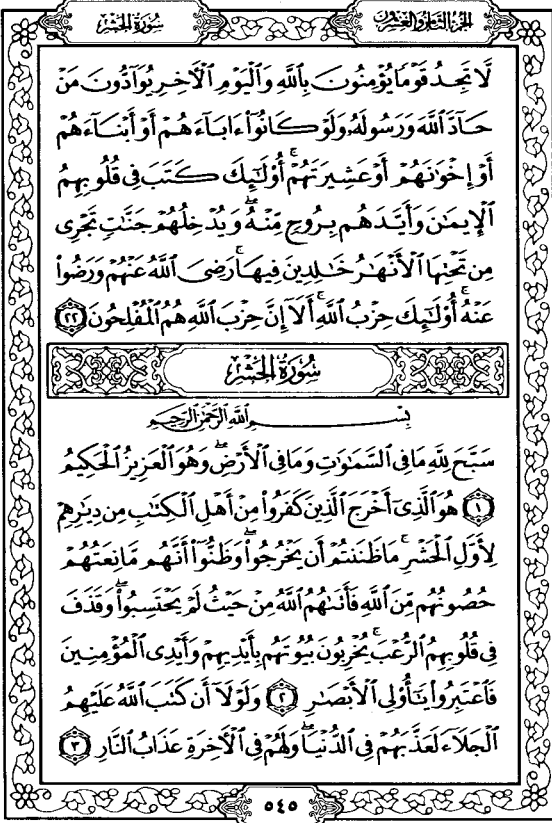 سُورَةُ الحَشْرِ
الجُزْءُ الثَّامِنُ وَالعِشْرُونَ
لَّا تَجِدُ قَوْمًا يُؤْمِنُونَ بِٱللَّهِ وَٱلْيَوْمِ ٱلْءَاخِرِ يُوَآدُّونَ مَنْ
حَآدَّ ٱللَّهَ وَرَسُولَهُۥ وَلَوْ كَانُوٓا۟ ءَابَآءَهُمْ أَوْ أَبْنَآءَهُمْ
أَوْ إِخْوَٰنَهُمْ أَوْ عَشِيرَتَهُمْ ۚ أُو۟لَٰٓئِكَ كَتَبَ فِى قُلُوبِهِمُ
ٱلْإِيمَٰنَ وَأَيَّدَهُم بِرُوحٍ مِّنْهُ ۖ وَيُدْخِلُهُمْ جَنَّٰتٍ تَجْرِى
مِن تَحْتِهَا ٱلْأَنْهَٰرُ خَٰلِدِينَ فِيهَا ۚ رَضِىَ ٱللَّهُ عَنْهُمْ وَرَضُوا۟
عَنْهُ ۚ أُو۟لَٰٓئِكَ حِزْبُ ٱللَّهِ ۚ أَلَآ إِنَّ حِزْبَ ٱللَّهِ هُمُ ٱلْمُفْلِحُونَ ٢٢
سُورَةُ الحَشْرِ
بِسْمِ ٱللَّهِ ٱلرَّحْمَٰنِ ٱلرَّحِيمِ
سَبَّحَ لِلَّهِ مَا فِى ٱلسَّمَٰوَٰتِ وَمَا فِى ٱلْأَرْضِ ۖ وَهُوَ ٱلْعَزِيزُ ٱلْحَكِيمُ
١ هُوَ ٱلَّذِىٓ أَخْرَجَ ٱلَّذِينَ كَفَرُوا۟ مِنْ أَهْلِ ٱلْكِتَٰبِ مِن دِيَٰرِهِمْ
لِأَوَّلِ ٱلْحَشْرِ ۚ مَا ظَنَنتُمْ أَن يَخْرُجُوا۟ ۖ وَظَنُّوٓا۟ أَنَّهُم مَّانِعَتُهُمْ
حُصُونُهُم مِّنَ ٱللَّهِ فَأَتَىٰهُمُ ٱللَّهُ مِنْ حَيْثُ لَمْ يَحْتَسِبُوا۟ ۖ وَقَذَفَ
فِى قُلُوبِهِمُ ٱلرُّعْبَ ۚ يُخْرِبُونَ بُيُوتَهُم بِأَيْدِيهِمْ وَأَيْدِى ٱلْمُؤْمِنِينَ
فَٱعْتَبِرُوا۟ يَٰٓأُو۟لِى ٱلْأَبْصَٰرِ ٢ وَلَوْلَآ أَن كَتَبَ ٱللَّهُ عَلَيْهِمُ
ٱلْجَلَآءَ لَعَذَّبَهُمْ فِى ٱلدُّنْيَا ۖ وَلَهُمْ فِى ٱلْءَاخِرَةِ عَذَابُ ٱلنَّارِ ٣
٥٤٥